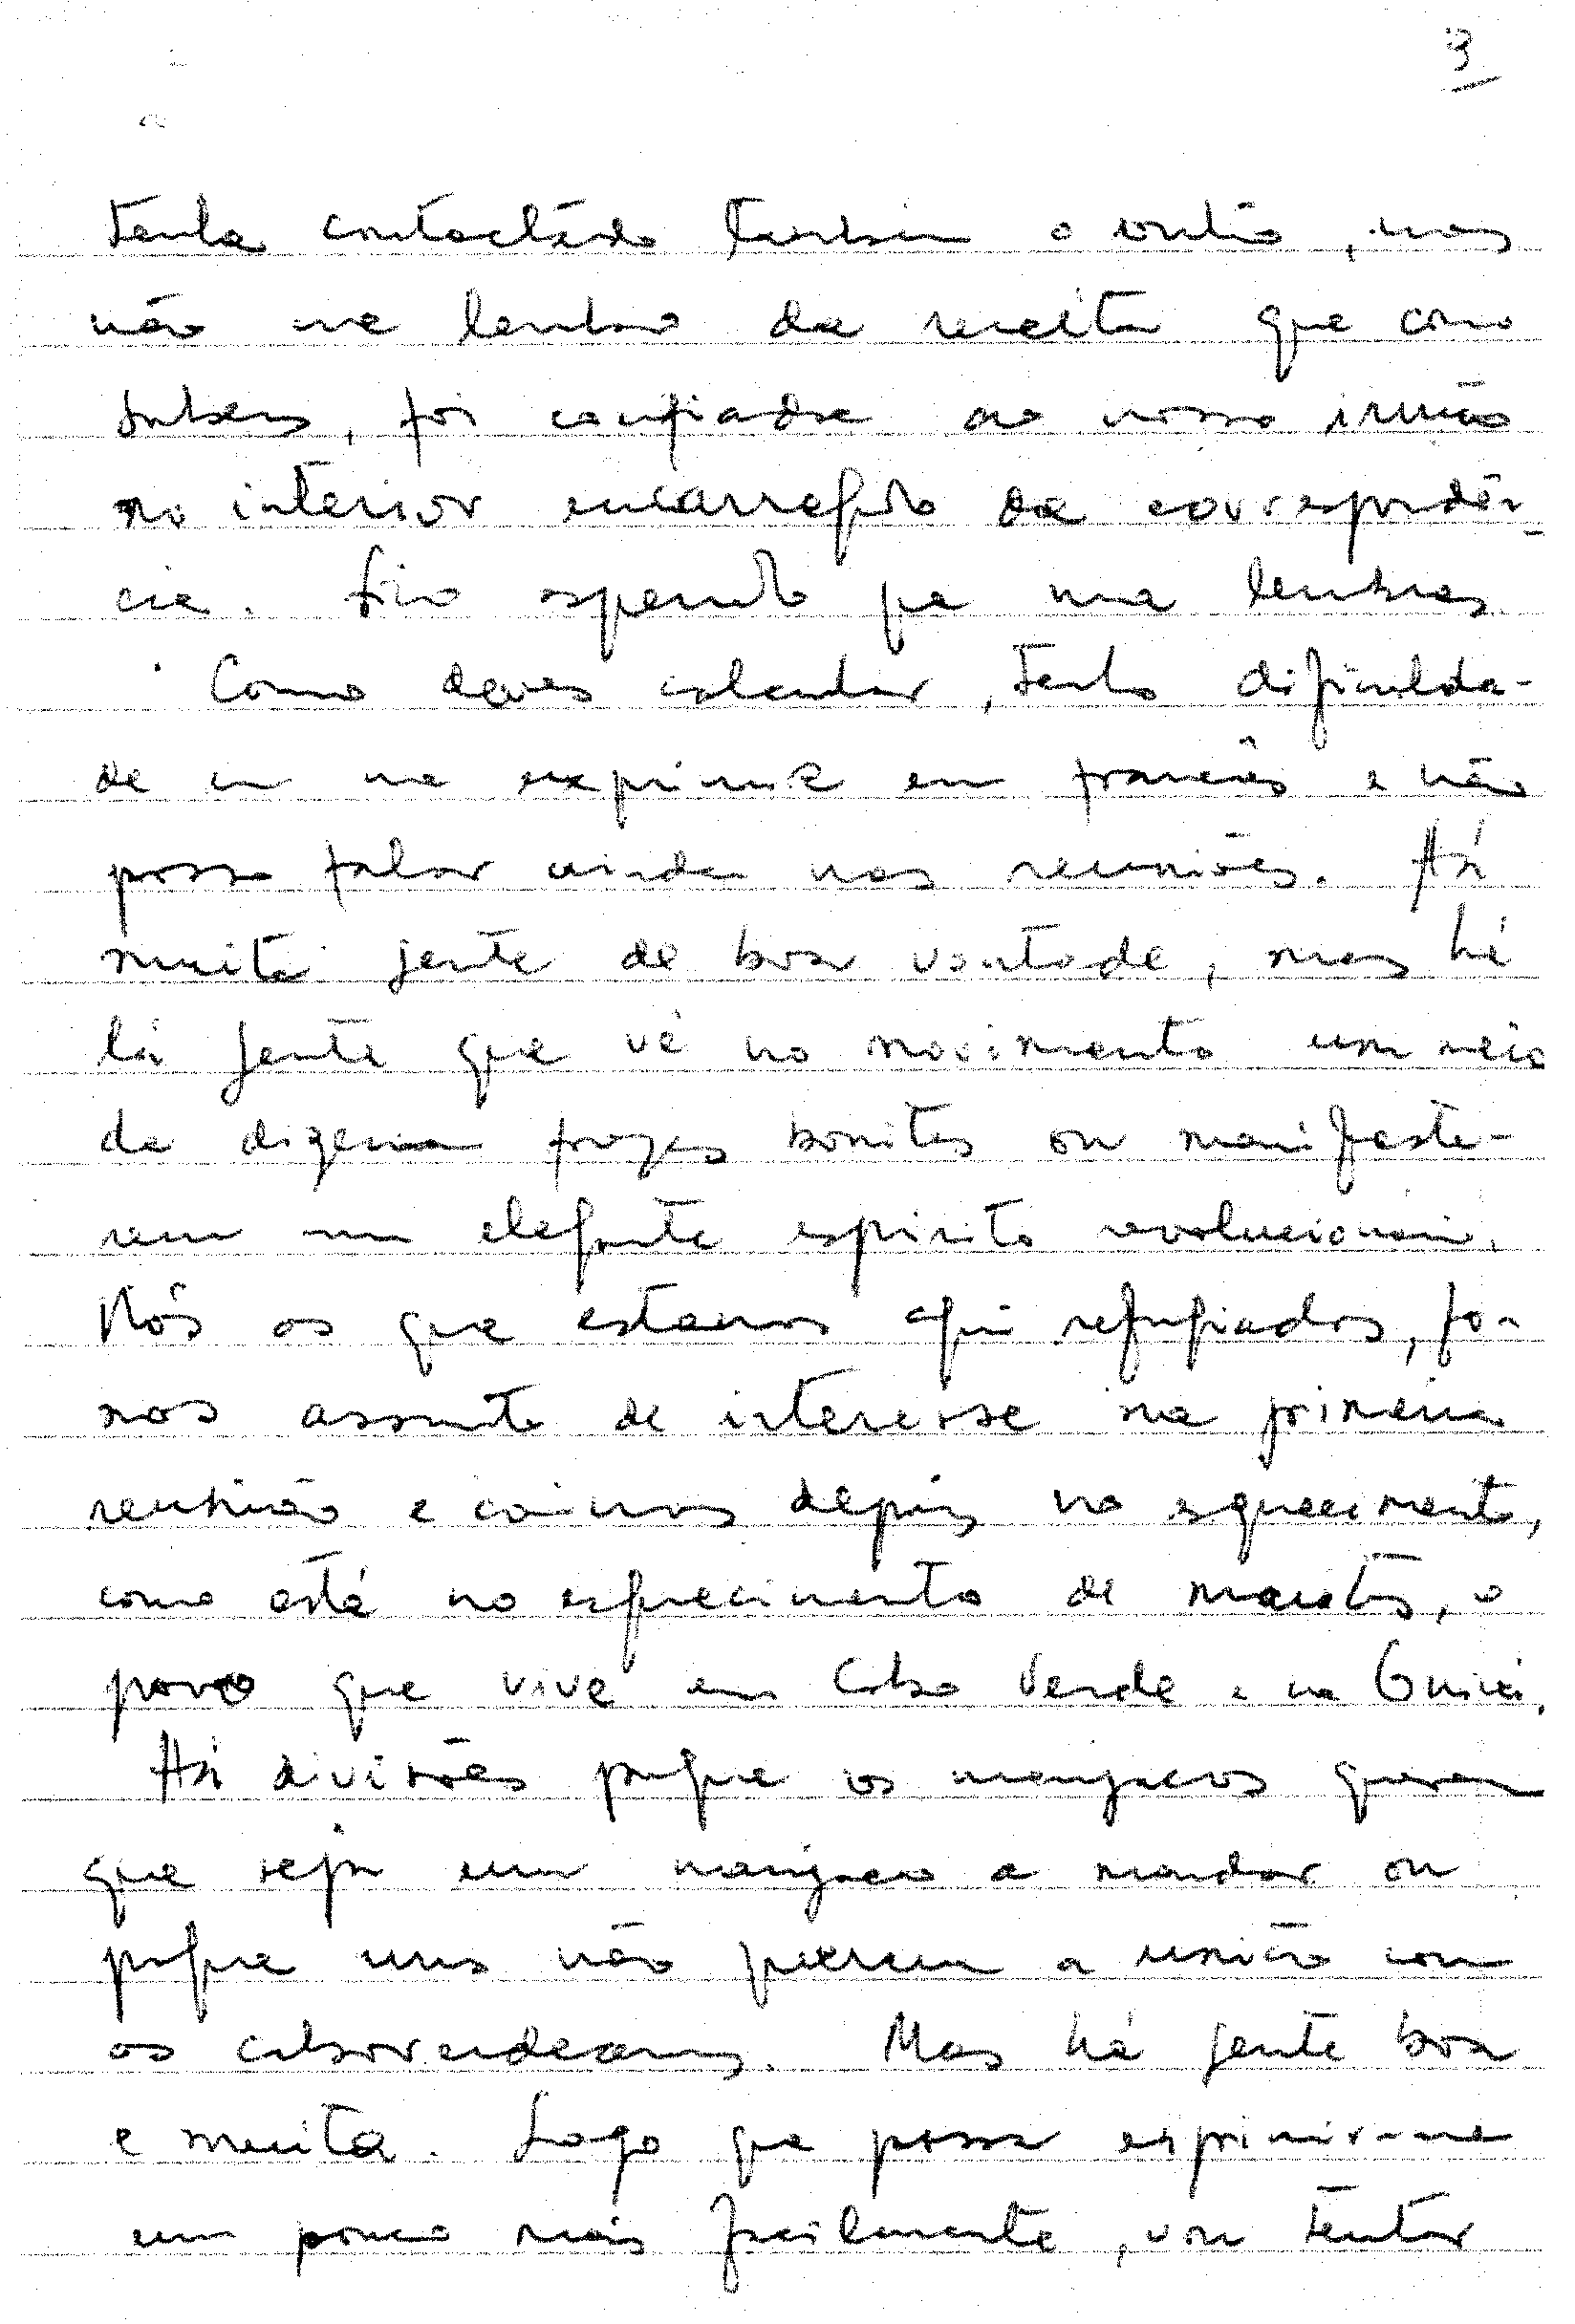 3
tenha contactado também o então, mas
não me lembro da receita que como
sabes, foi confiada ao nosso irmão
no interior encarregado da correspondên-
cia. Fico esperando que me lembres.
Como deves calcular, tenho dificulda-
de em me exprimir em francês e não
posso falar ainda nas reuniões. Há
muita gente de boa vontade, mas há
lá gente que vê no movimento um meio
de dizerem frazes bonitas ou manifesta-
rem um elegante espirito revolucionario.
Nós os que estamos aqui refugiados, fo-
mos assunto de interesse na primeira
reunião e caimos depois no esquecimento,
como está no esquecimento de muitos, o
povo que vive em Cabo Verde e na Guiné.
Há divisões porque os manjacos querem
que seja um manjaco a mandar ou
porque uns não querem a união com
os caboverdeanos. Mas há gente boa
e muita. Logo que possa exprimir-me
um pouco mais facilmente, vou tentar